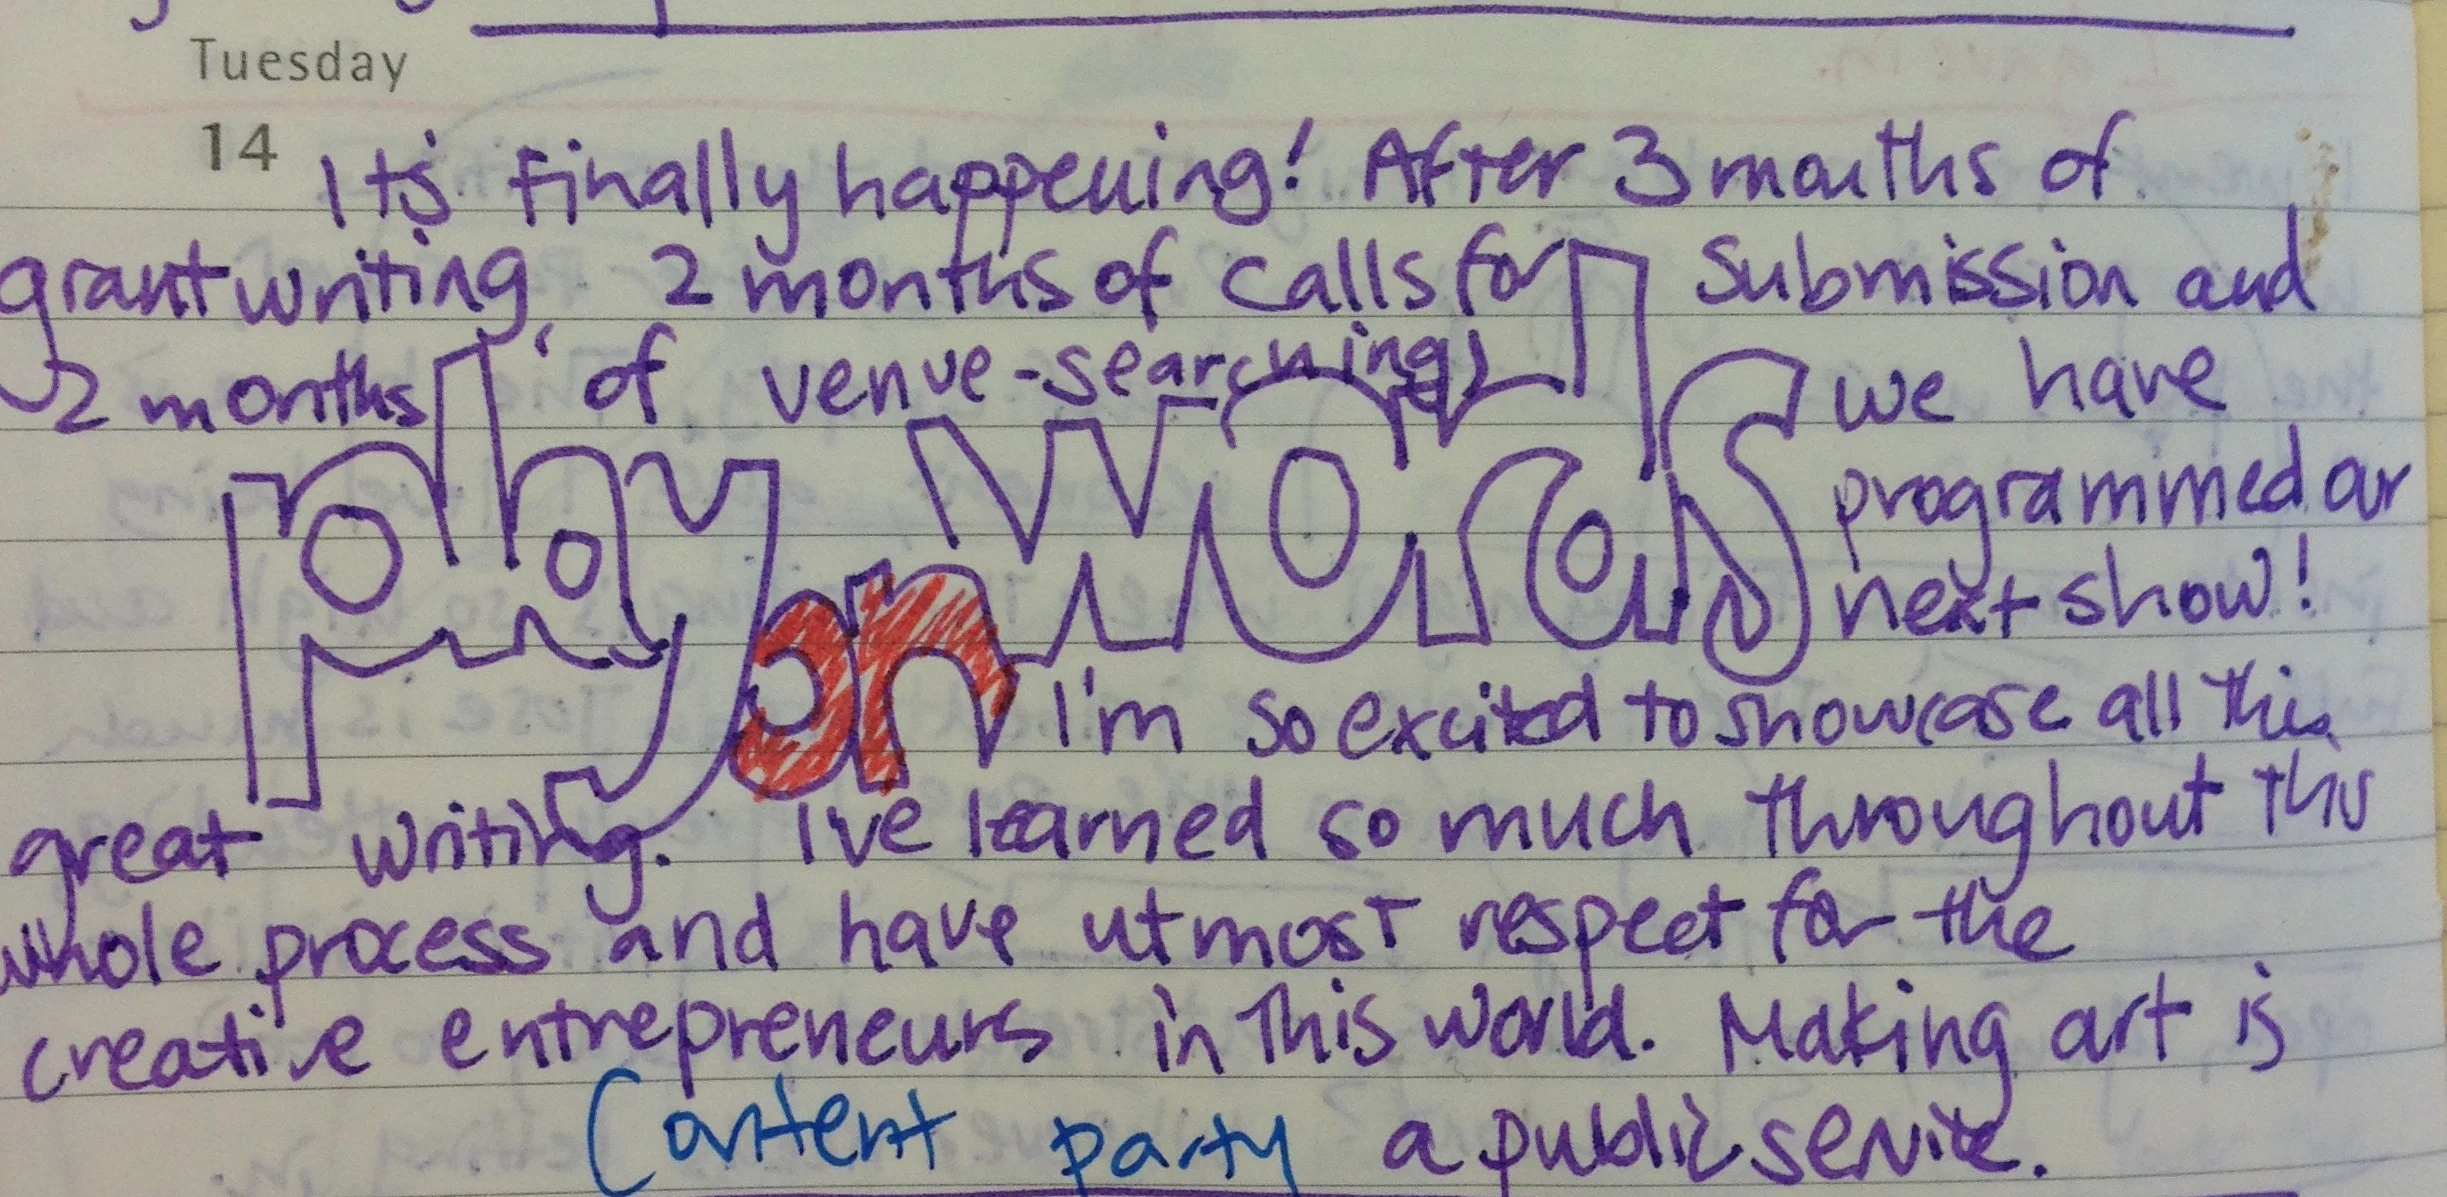 Tuesday
14
It's finally happening! After 3 months of
grantwriting, 2 months of calls for submission and
2 months of venue-searching, we have
play on words
programmed our
next show!
I'm so excited to showcase all this
great writing. I've learned so much throughout this
whole process and have utmost respect for the
creative entrepreneurs in this world. Making art is
a public service.
Content party